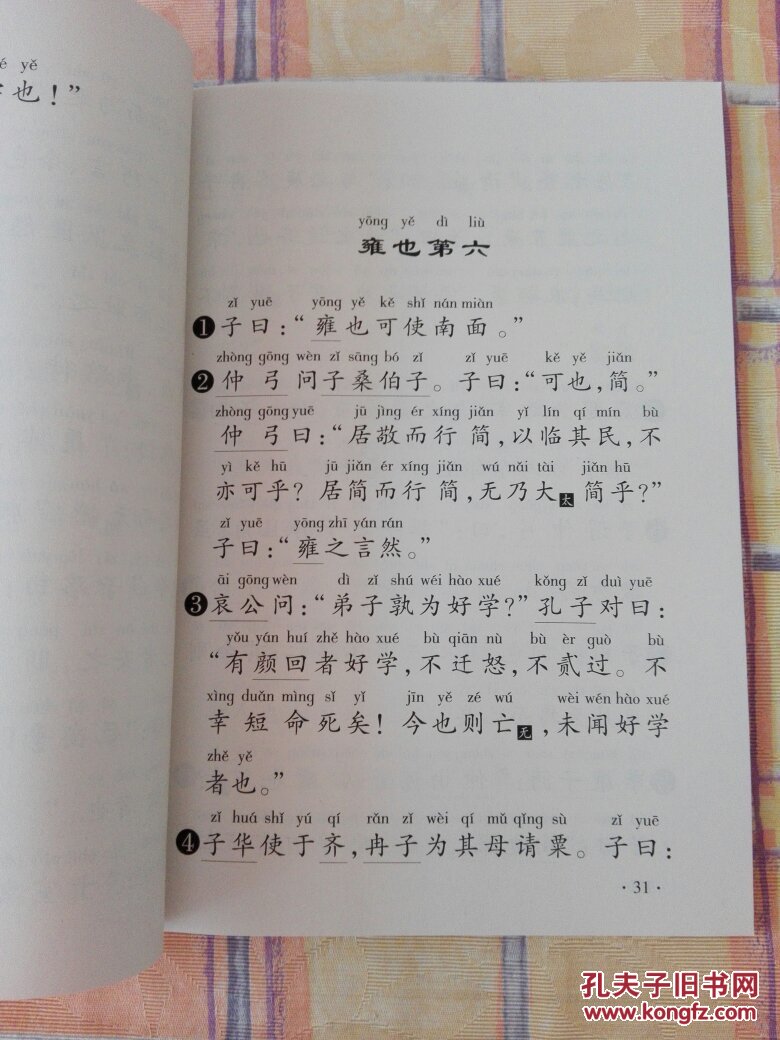 yě
也！”
yōng yě dì liù
雍也第六
zǐ yuē yōng yě kě shǐ nán miàn
❶子曰：“雍也可使南面。”
zhòng gōng wèn zǐ sāng bó zǐ zǐ yuē kě yě jiǎn
❷仲弓问子桑伯子。子曰：“可也，简。”
zhòng gōng yuē jū jìng ér xíng jiǎn yǐ lín qí mín bù
仲弓曰：“居敬而行简，以临其民，不
yì kě hū jū jiǎn ér xíng jiǎn wú nǎi tài jiǎn hū
亦可乎？居简而行简，无乃大太简乎？”
zǐ yuē yōng zhī yán rán
子曰：“雍之言然。”
āi gōng wèn dì zǐ shú wéi hào xué kǒng zǐ duì yuē
❸哀公问：“弟子孰为好学？”孔子对曰：
yǒu yán huí zhě hào xué bù qiān nù bù èr guò bù
“有颜回者好学，不迁怒，不贰过。不
xìng duǎn mìng sǐ yǐ jīn yě zé wú wèi wén hào xué
幸短命死矣！今也则亡无，未闻好学
zhě yě
者也。”
zǐ huá shǐ yú qí rǎn zǐ wèi qí mǔ qǐng sù zǐ yuē
❹子华使于齐，冉子为其母请粟。子曰：
·31·
孔夫子旧书网
www.kongfz.com